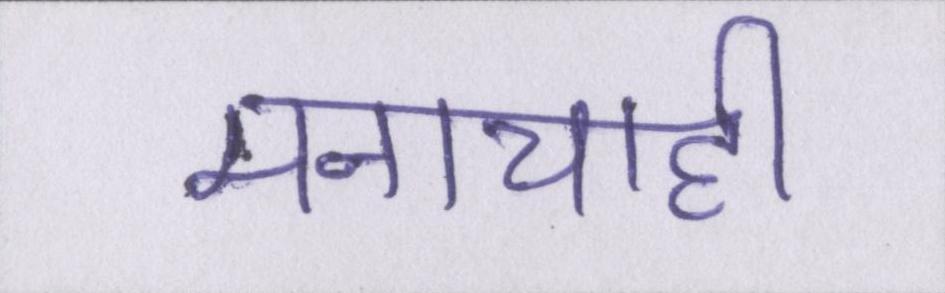 मनायाही